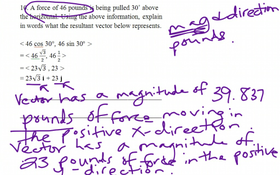 10. A force of 46 pounds is being pulled 30° above
the horizontal. Using the above information, explain
in words what the resultant vector below represents.
mag + direction
pounds.
< 46 cos 30°, 46 sin 30° >
= < 46 √3/2, 46 1/2 >
= < 23√3 , 23 >
= 23√3 i + 23 j
Vector has a magnitude of 39.837
pounds of force moving in
the positive x-direection.
Vector has a magnitude of
23 pounds of force in the positive
y-direction.